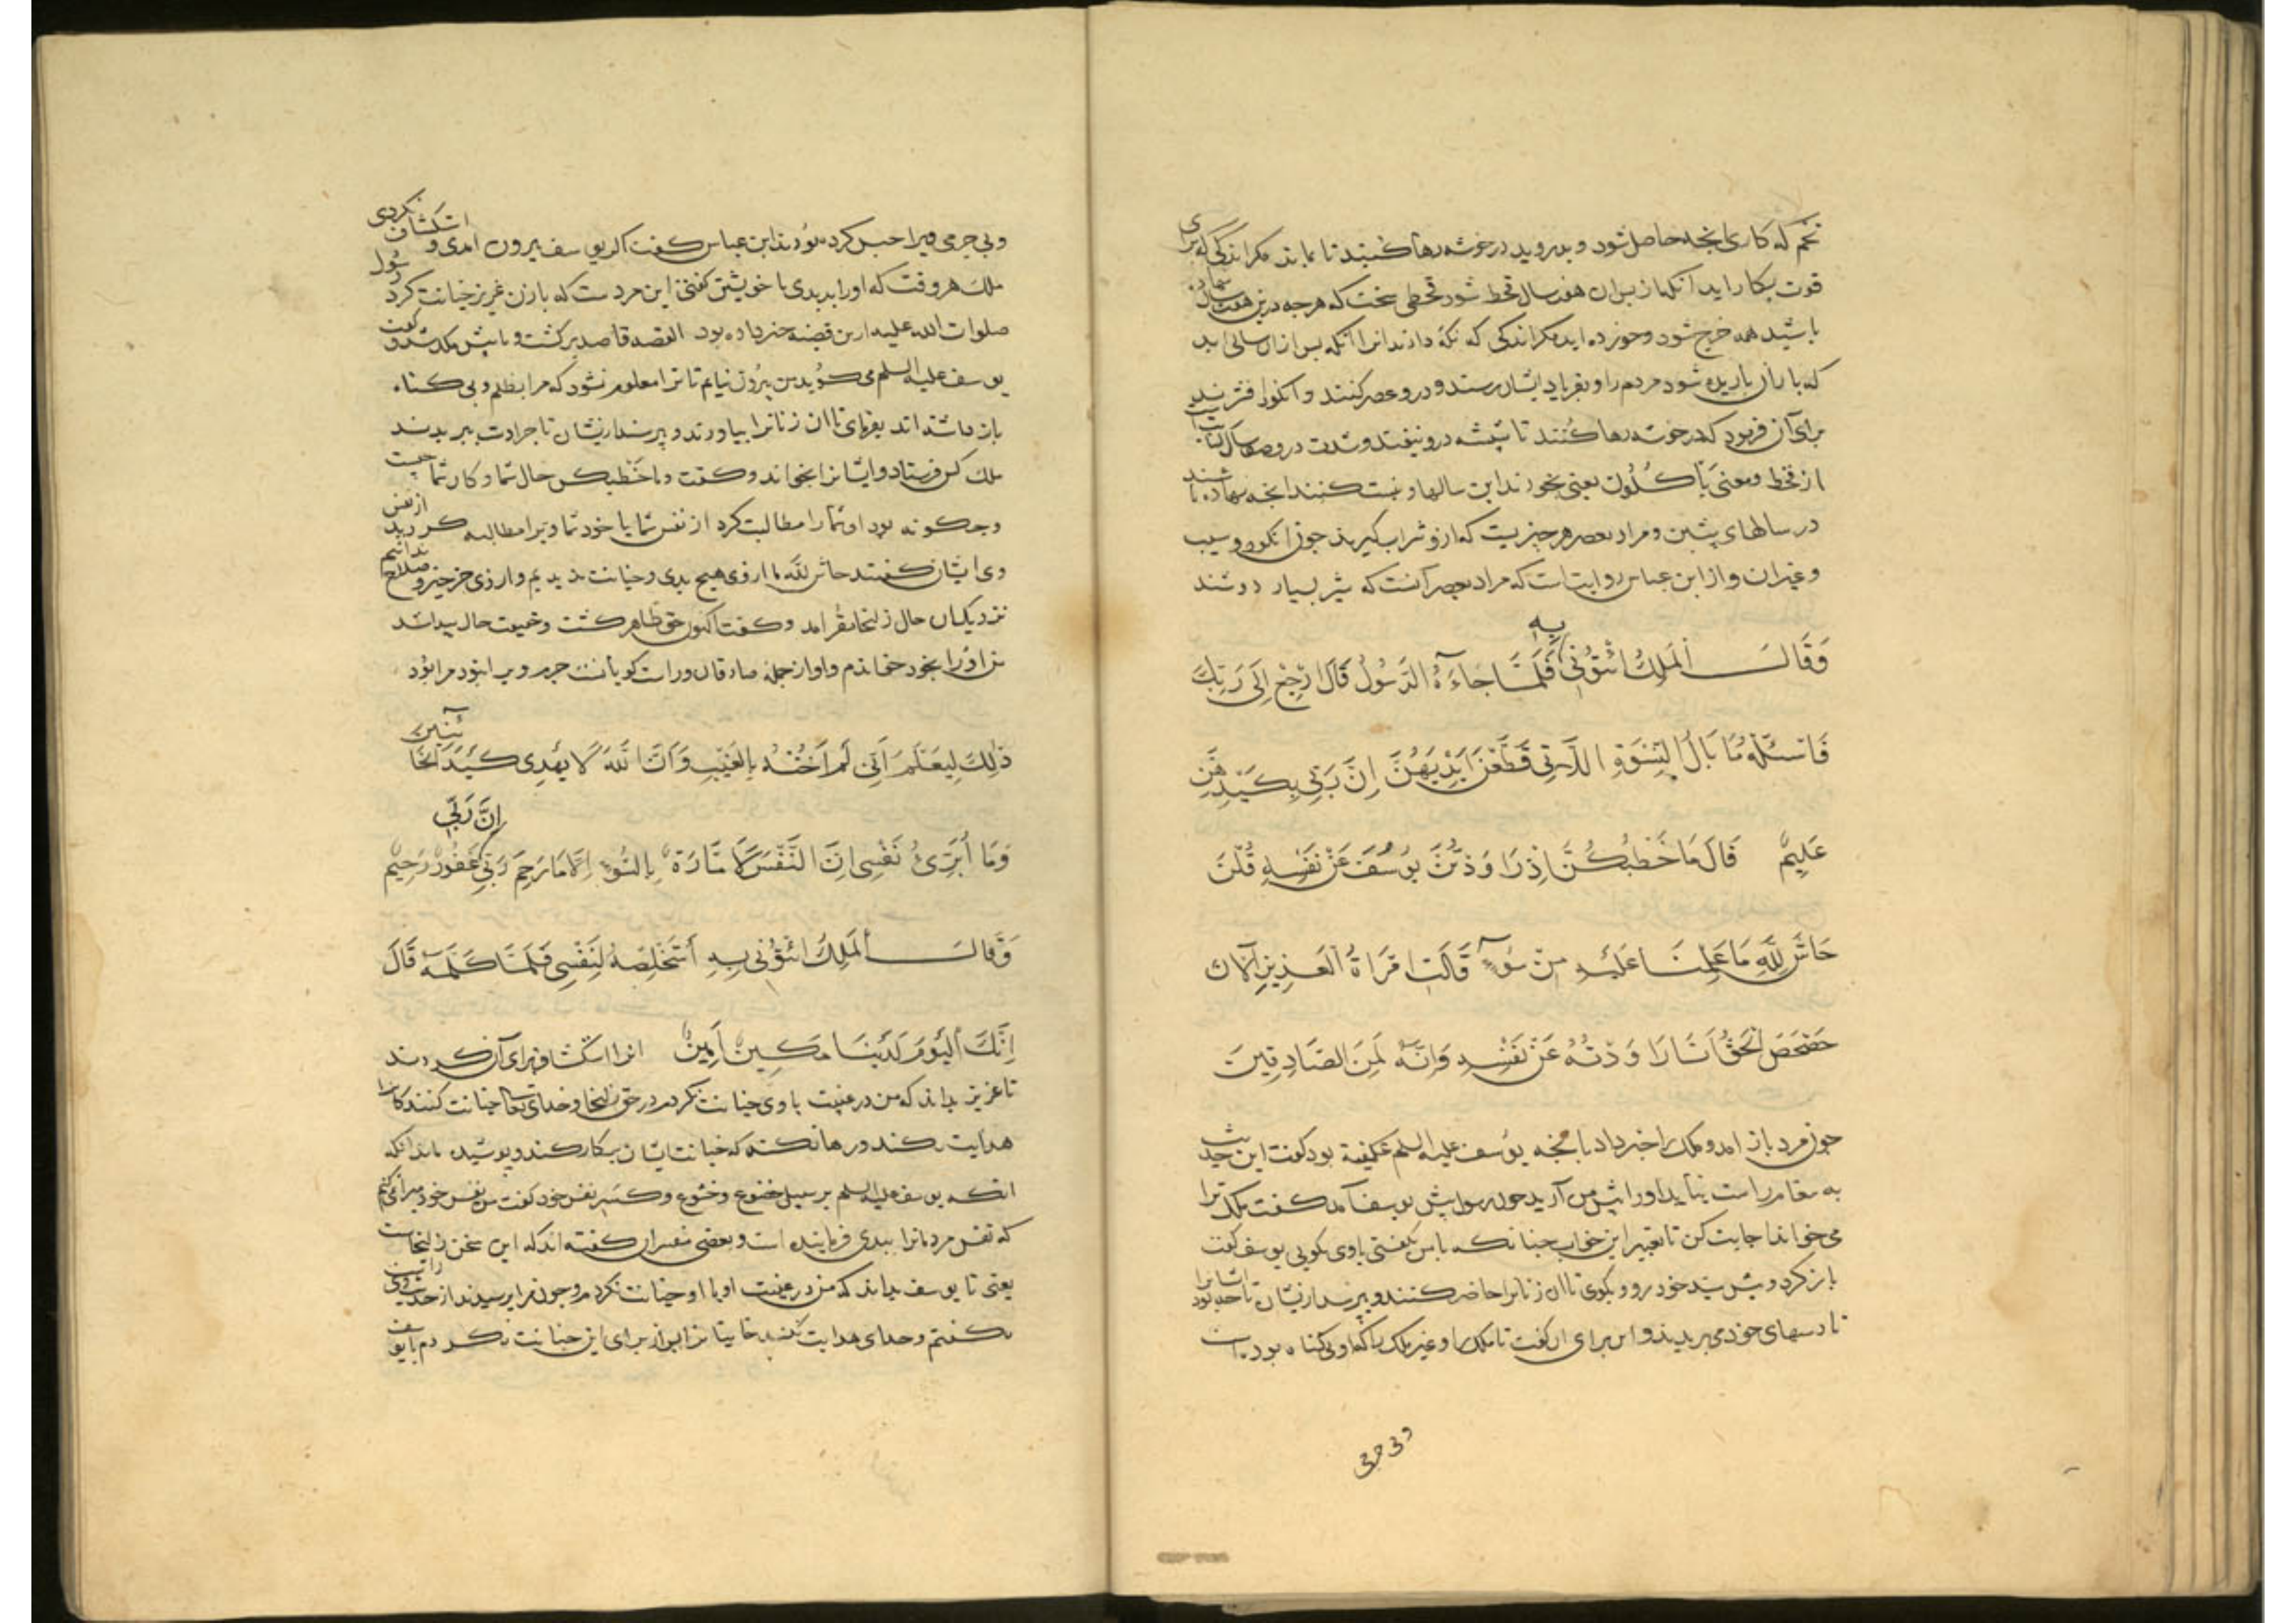 تخم که کاری انچه حاصل شود و بدروید در خوشه رها کنید تا بماند مکر اندکی که برای
قوت بکار اید آنکه از پس ان هفت سال قحط شود قحطی سخت که هرچه درین هفت سال
باشید همه خرج شود و خورده اید مکر اندکی که نکه دارند انرا آنکه پس ازان سالی اید
که باران باریده شود مردم را و بفریاد ایشان رسند و درو عصر کنند و انکور افشرند
برای آن فرمود که در خوشه رها کنند تا شپشه درو نیفتد و شدت درو
از قحط و معنی یأکلون یعنی بخورند این سالها و نسبت کنند انچه نهاده باشند
در سالهای پیشین و مراد بعصر هر چیزیست که ازو شراب کیرند چون انکور و سیب
و غیر ان و از ابن عباس روایت است که مراد بعصر آنست که شیر بسیار دوشند
وَقَالَ ٱلْمَلِكُ ائْتُونِي بِهِ فَلَمَّا جَاءَهُ الرَّسُولُ قَالَ ارْجِعْ إِلَى رَبِّكَ
فَاسْئَلْهُ مَا بَالُ النِّسْوَةِ اللَّاتِي قَطَّعْنَ أَيْدِيَهُنَّ إِنَّ رَبِّي بِكَيْدِهِنَّ
عَلِيمٌ قَالَ مَا خَطْبُكُنَّ إِذْ رَاوَدْتُنَّ يُوسُفَ عَنْ نَفْسِهِ قُلْنَ
حَاشَ لِلَّهِ مَا عَلِمْنَا عَلَيْهِ مِنْ سُوءٍ قَالَتِ امْرَأَةُ الْعَزِيزِ الْآنَ
حَصْحَصَ الْحَقُّ أَنَا رَاوَدْتُهُ عَنْ نَفْسِهِ وَإِنَّهُ لَمِنَ الصَّادِقِينَ
چون مرد باز امد و ملک را خبر داد بانچه یوسف علیه السلم گفته بود کفت این حدیث
به پیغام راست نیاید اورا پیش من آرید چون رسول پیش یوسف آمد کفت ملک ترا
می خواند اجابت کن تا تعبیر این خواب چنانکه با من بکفتی با وی بکویی یوسف کفت
باز کرد و پیش سید خود رو و بکوی تا ان زنانرا حاضر کنند و بپرسد ازیشان تا ایشانرا چه بود
تا دستهای خود می بریدند و این برای ان کفت تا ملک را و غیر ملک را که او بی کناه بوده است
وبی جرمی
وبی جرمی ویرا حبس کرده بودند ابن عباس کفت اکر یوسف بیرون امدی و استکشاف نکردی
ملک هر وقت که اورا بدیدی با خویشتن کفتی این مردست که با زن عزیز خیانت کرد رسول
صلوات الله علیه ازین قصه خبر داده بود القصه قاصد برکشت و با پیش ملک شد و کفت
یوسف علیه السلم می کوید من بیرون نیایم تا ترا معلوم نشود که مرا بظلم و بی کناه
باز داشته اند بفرمای تا ان زنانرا بیاورند و بپرسد ازیشان تا چرا دست ببریدند
ملک کس فرستاد و ایشانرا بخواند و کفت ما خَطْبُکُن حال شما و کار شما چیست
و چکونه بود او شمارا مطالبت کرد از نفس شما یا خود شما ویرا مطالبه کردید از نفس
وی ایشان کفتند حاش لله ما ازوی هیچ بدی و خیانت ندیدیم و ازوی جز خیر و صلاح ندانیم
نزدیک ان حال زلیخا مقر امد و کفت اکنون حق ظاهر کشت و حقیقت حال پیدا شد
من اورا بخود خواندم و او از جمله صادقان و راست کویانست جرم ویرا نبود مرا بود
ذَلِكَ لِيَعْلَمَ أَنِّي لَمْ أَخُنْهُ بِالْغَيْبِ وَأَنَّ اللَّهَ لَا يَهْدِي كَيْدَ الْخَائِنِينَ
وَمَا أُبَرِّئُ نَفْسِي إِنَّ النَّفْسَ لَأَمَّارَةٌ بِالسُّوءِ إِلَّا مَا رَحِمَ رَبِّي إِنَّ رَبِّي غَفُورٌ رَحِيمٌ
وَقَالَ ٱلْمَلِكُ ائْتُونِي بِهِ أَسْتَخْلِصْهُ لِنَفْسِي فَلَمَّا كَلَّمَهُ قَالَ
إِنَّكَ ٱلْيَوْمَ لَدَيْنَا مَكِينٌ أَمِينٌ انرا استکشاف برای آن کردند
تا عزیز بداند که من در غیبت با وی خیانت نکردم در حق زلیخا و خدای تعالی خیانت کنندکانرا
هدایت نکند و رها نکند که خیانت ایشان بکار کند و پوشیده ماند انکه
انکه یوسف علیه السلم بر سبیل خضوع و خشوع و کسر نفس خود کفت من نفس خود مبرا نمی کنم
که نفس مردمانرا ببدی فرماینده است و بعضی مفسران کفته اند که این سخن زلیخاست
یعنی تا یوسف بداند که من در غیبت او با او خیانت نکردم و چون مرا پرسیدند از حدیث وی راست
بکفتم و خدای هدایت نکند خاینانرا برای این خیانت نکردم با یوسف